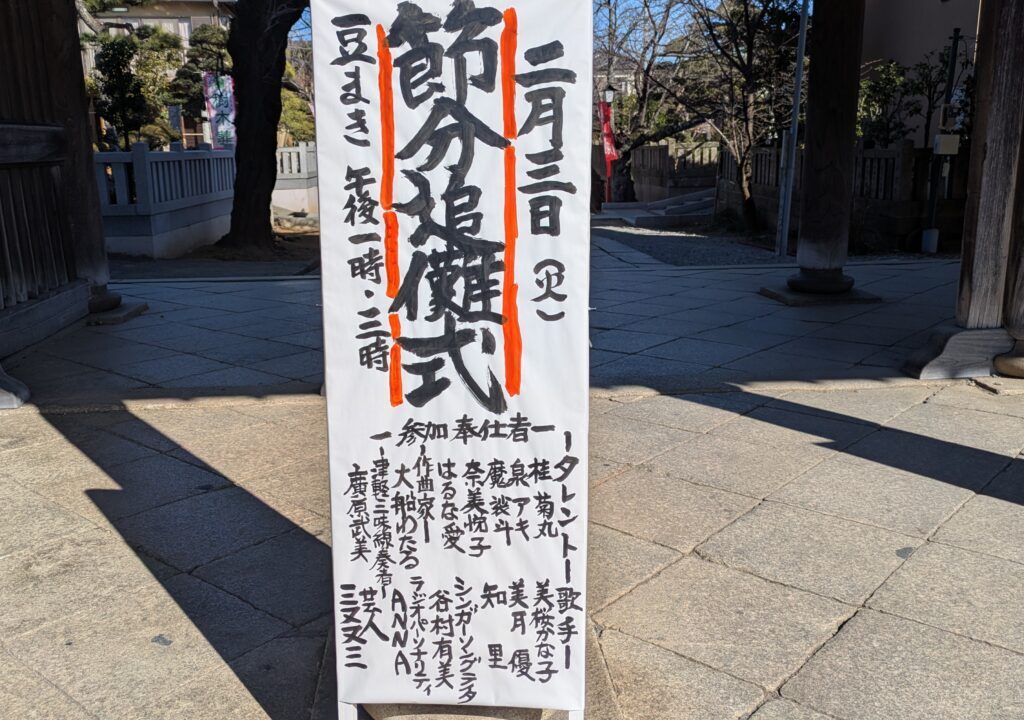 二月三日(火)
節分追儺式
豆まき 午後一時・三時
ー参加奉仕者ー
ータレントー
桂 菊丸
泉 アキ
魔裟斗
奈美悦子
はるな愛
ー作曲家ー
大船わたる
ー津軽三味線奏者ー
廣原武美
ー歌手ー
美桜かな子
美月 優
知 里
シンガーソングライタ
谷村有美
ラジオパーソナリティ
ANNA
芸人
三又又三